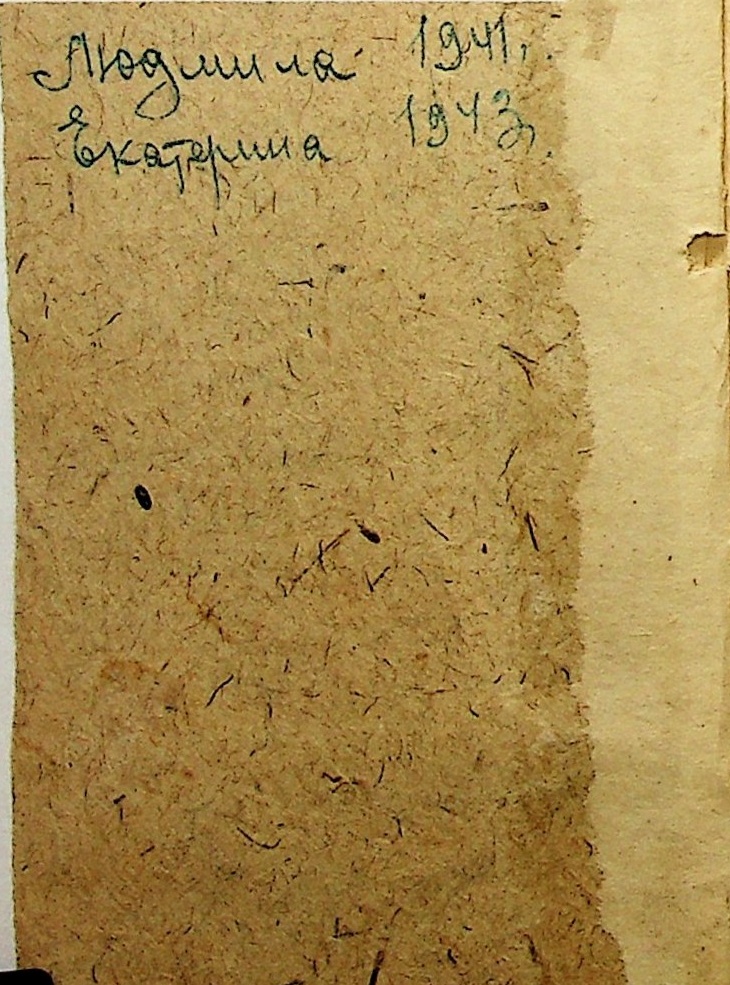 Людмила 1941г.
Екатерина 1943г.